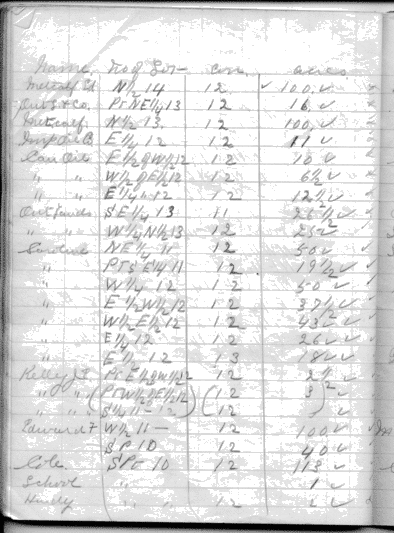 Name No of Lot Con. acres
Metcalf Ed N½ 14 12 ✓ 100 ✓
Ont. & Co. Pt NE¼ 13 12 16 ✓
Metcalf N½ 13 12 100 ✓
Imp Oil E¼ 12 12 11 ✓
Can Oil E½ of W½ 12 12 10 ✓
" " W½ of E½ 12 12 6½ ✓
" " E¼ " 12 12 12½ ✓
SE¼ 13 11 25 ✓
" " W½ N½ 13 12 25 ✓
NE¼ 11 12 50 ✓
" Pt SE¼ 11 12 19½ ✓
" W¼ 12 12 50 ✓
" E½ W½ 12 12 37½ ✓
" W½ E½ 12 12 43½ ✓
" E¼ 12 12 26 ✓
" E¼ 12 13 18 ✓
Kelly J E Pt E½ of W½ 12 12 2½ ✓
" " " (Pt W½ of E½ 12) (12 3) ✓
" " " S½ 11 - 12 12
Edward F W½ 11 — 12 100 ✓
SP 10 12 40 ✓
Cole S Pt 10 12 113 ✓
School " 1 ✓
" " 12 ✓